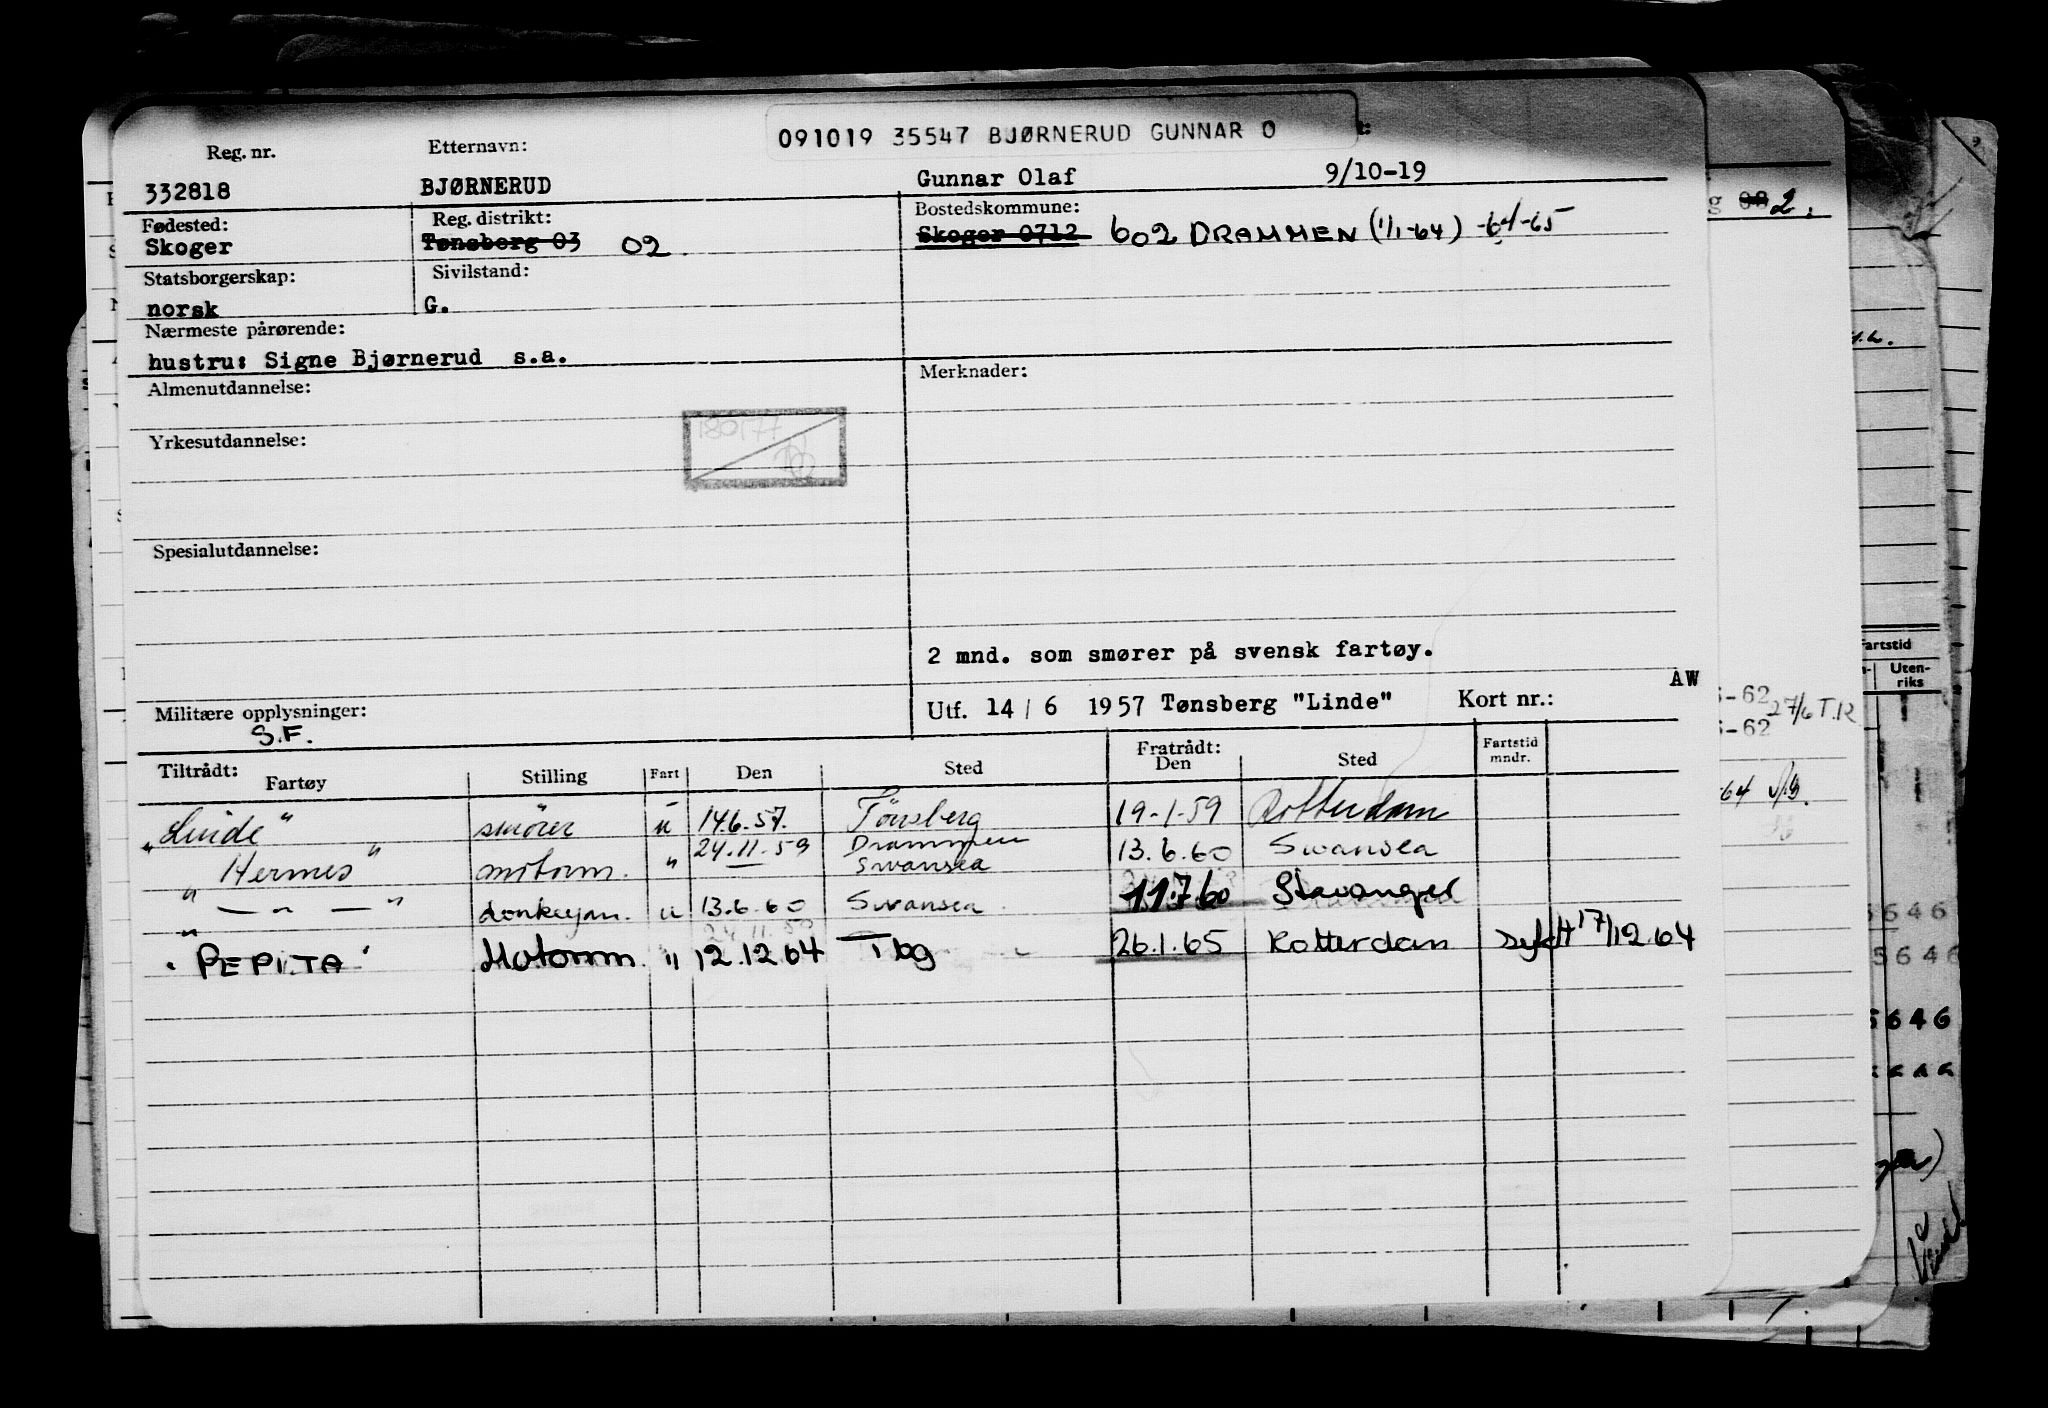 091019 35547 BJØRNERUD GUNNAR O
Reg. nr. Etternavn:
332818 BJØRNERUD Gunnar Olaf 9/10-19
Fødested: Reg. distrikt: Bostedskommune:
Skoger Tønsberg 03 02 Skoger 0712 602 DRAMMEN (1/1-64) -64-65
Statsborgerskap: Sivilstand:
norsk G.
Nærmeste pårørende:
hustru: Signe Bjørnerud s.a.
Almenutdannelse: Merknader:
180177
Yrkesutdannelse:
Spesialutdannelse:
2 mnd. som smører på svensk fartøy.
AW
Militære opplysninger: Utf. 14 / 6 1957 Tønsberg "Linde" Kort nr.:
S.F.
Tiltrådt: Fartøy Stilling Fart Den Sted Fratrådt: Den Sted Fartstid mndr.
"Linde" smører u 14.6.57. Tönsberg 19-1-59 Rotterdam
"Hermes" motorm. " 24.11.59 Drammen Swansea 13.6.60 Swansea
" — " — " donkeym. u 13.6.60 Swansea 11.7.60 Stavanger
"PEPITA" Motorm. " 12.12.64 Tbg 26.1.65 Rotterdam 17/12.64
2.
Fartstid
Uten-
riks
-62 27/6 T.R
-62
-64
5646
5646
5646